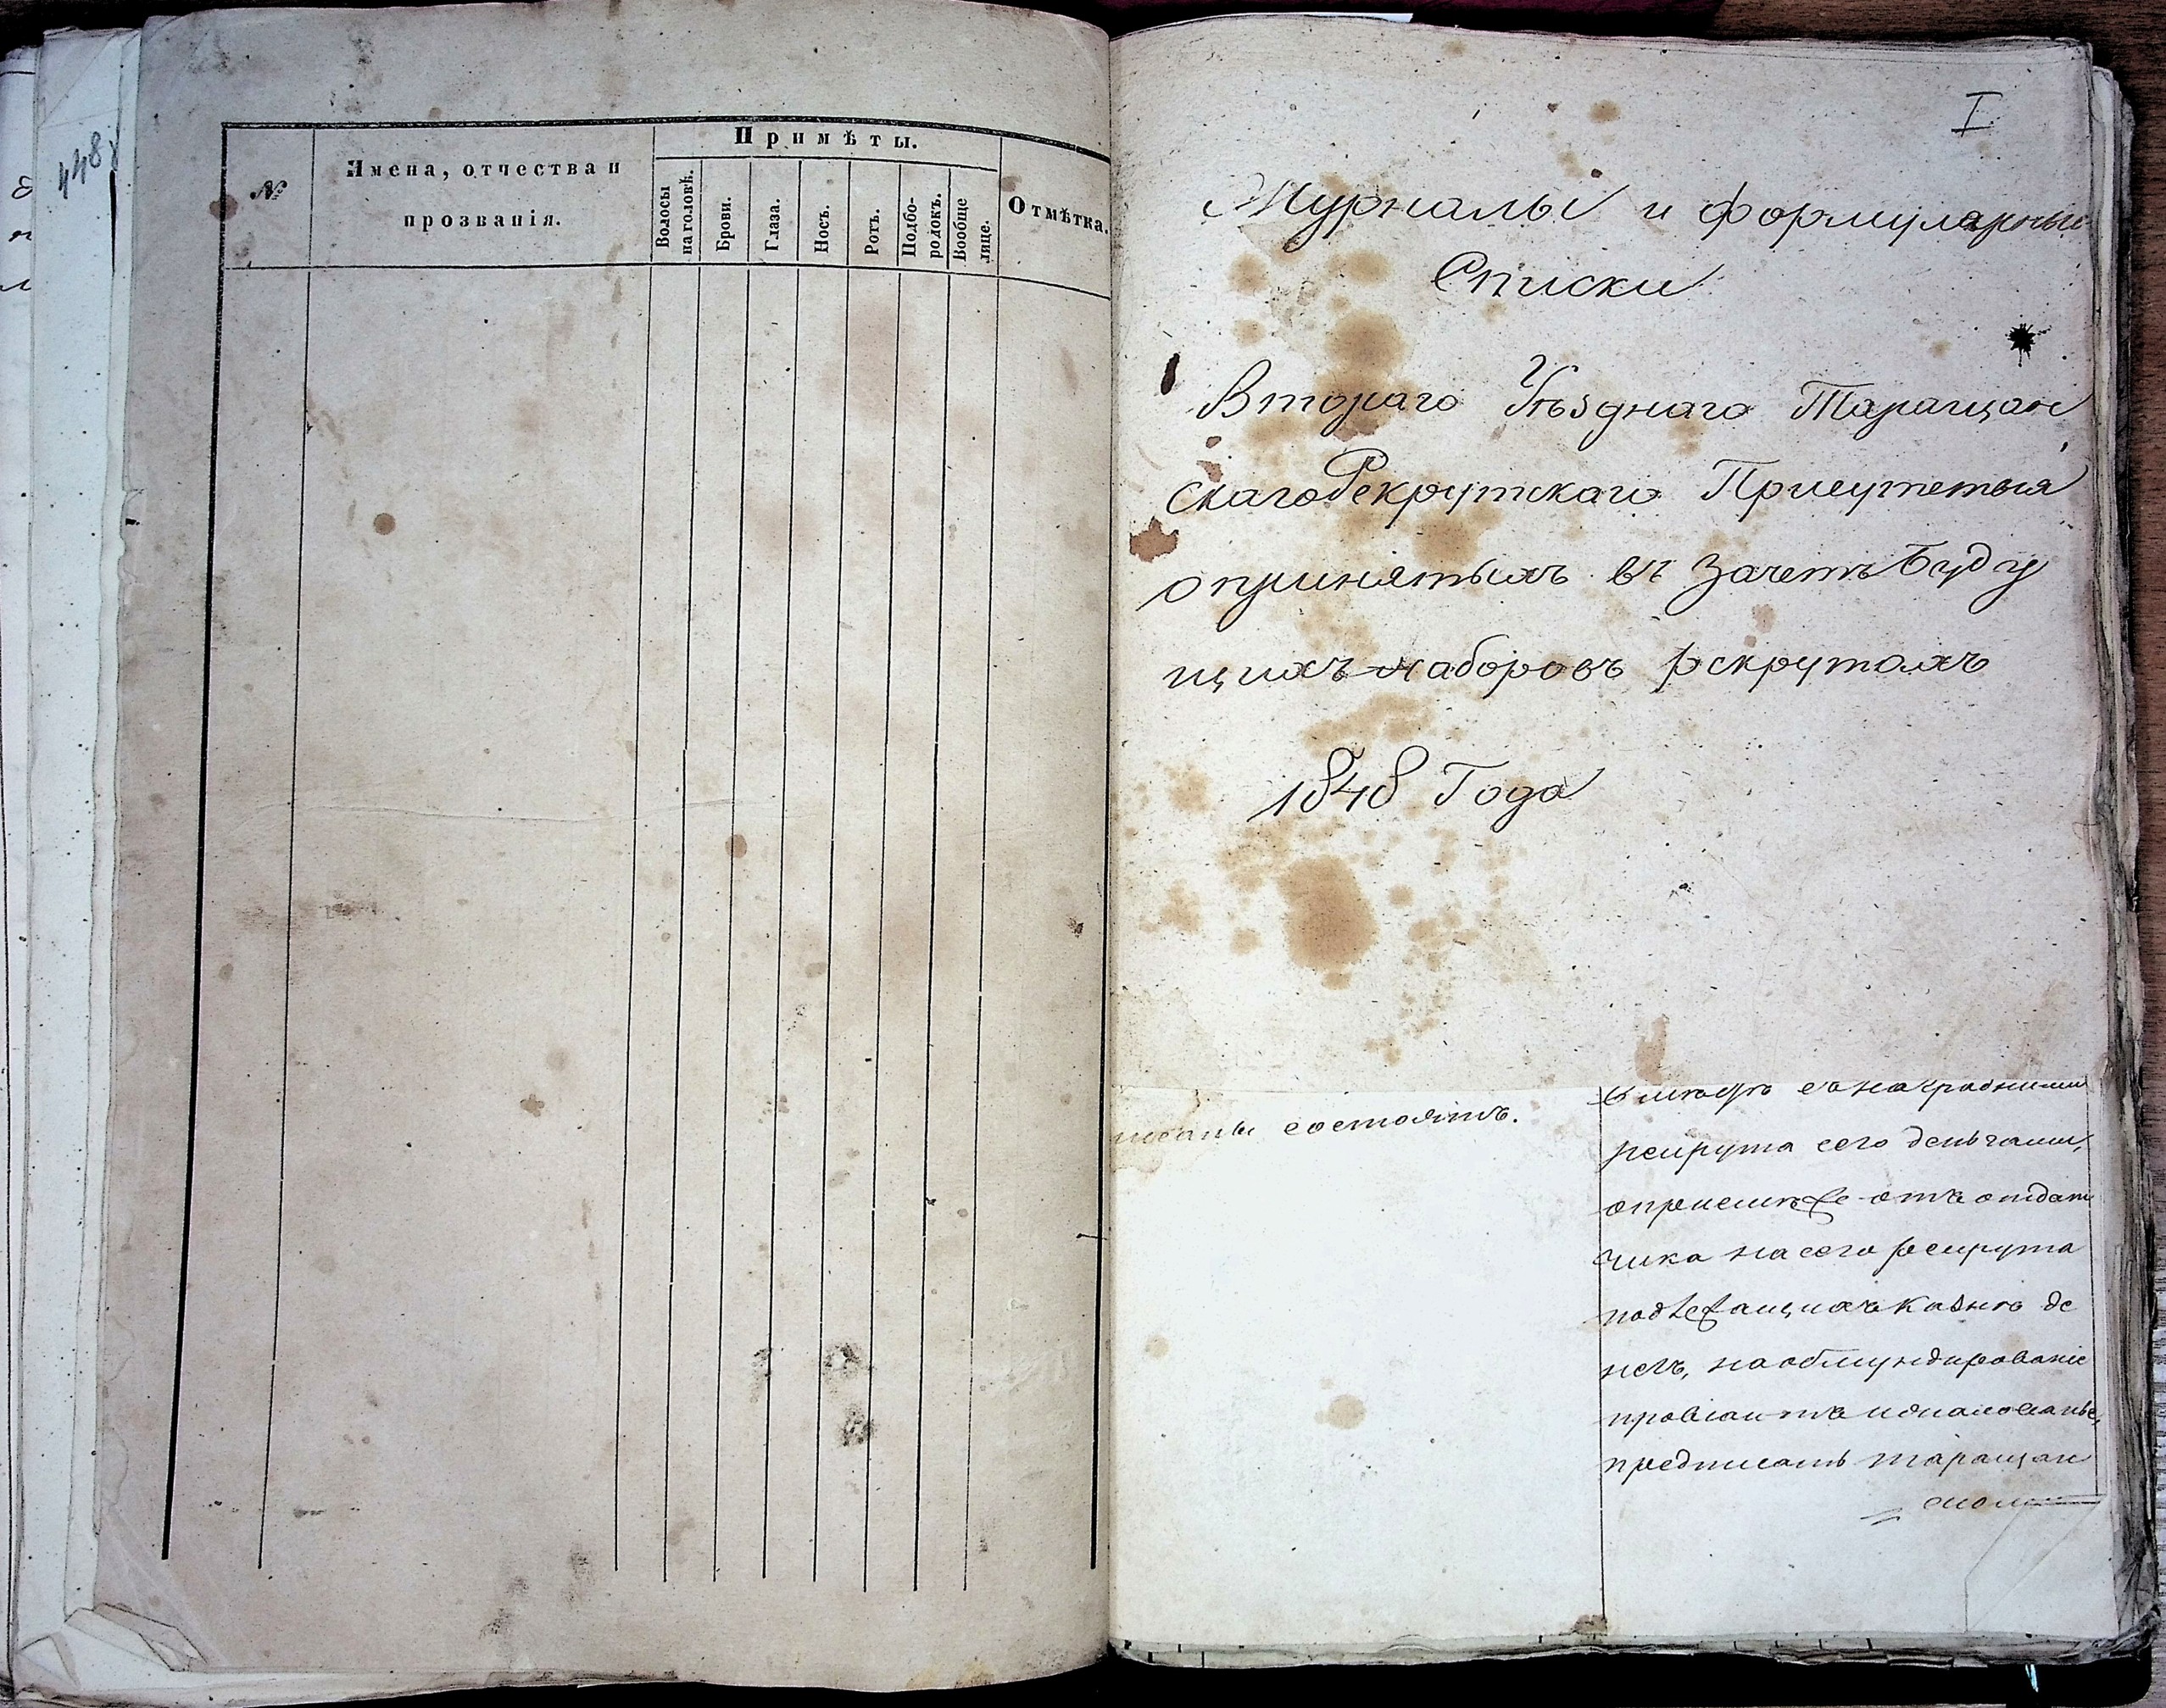 448
№
Имена, отчества и
прозванія.
Примѣты.
Волосы
на головѣ.
Брови.
Глаза.
Носъ.
Ротъ.
Подбо-
родокъ.
Вообще
лице.
Отмѣтка.
I
Журналы и формулярные
Списки
Втораго Уѣзднаго Таращан
скаго Рекрутскаго Присутствія
о принятыхъ въ зачетъ буду
щихъ наборовъ рекрутахъ
1848 Года
состоятъ.
рекрута сего деньгами,
о приемѣ же отъ отдат
чика на сего рекрута
подлежащихъ казнѣ де
негъ, на обмундированіе
провіантъ и жалованье,
предписать таращан
ском